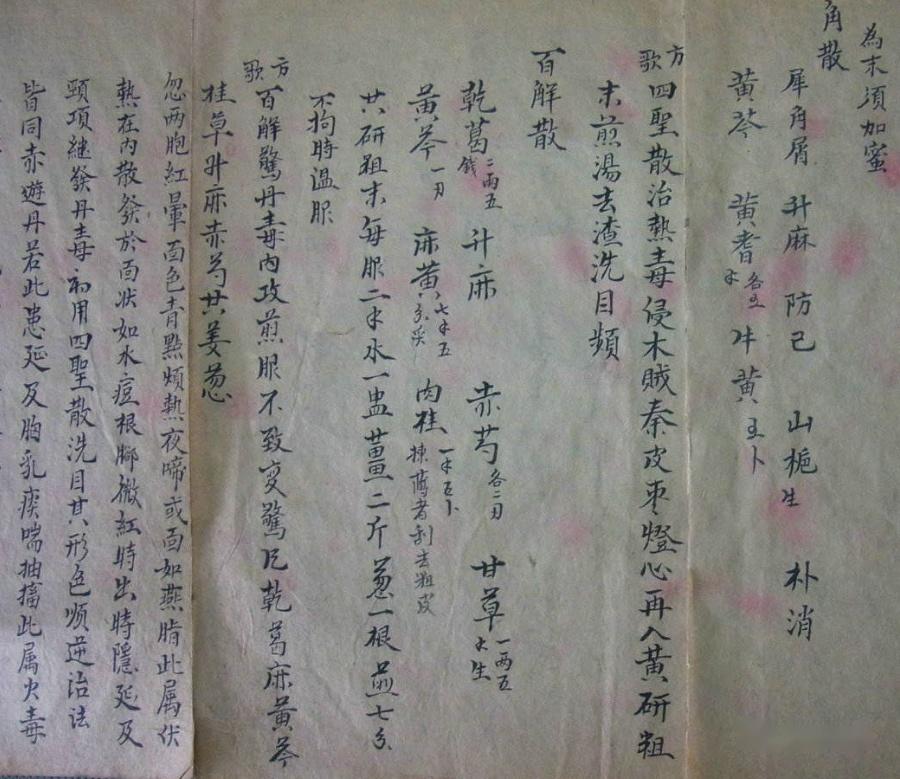 為末須加蜜
角散
犀角屑 升麻 防己 山梔生 朴消
黃芩 黃耆各五 牛黃五卜
方歌 四聖散治熱毒侵木賊秦皮枣燈心再入黃研粗
末煎湯去渣洗目頻
百解散
乾葛二兩五錢 升麻 赤芍各二刃 甘草一兩五 生
黃芩一刃 麻黃七五 肉桂一五卜 揀薄者刮去粗皮
共研粗末每服二水一盅薑二斤葱一根煎七分
不拘時溫服
方歌 百解驚丹毒內攻煎服不致变驚乾葛麻黃芩
桂草升麻赤芍共姜葱
忽两胞紅暈面色青點煩熱夜啼或面如燕脂此属伏
熱在內散發於面状如水痘根腳微紅時出時隱延及
頸項継發丹毒初用四聖散洗目其形色順逆治法
皆同赤遊丹若此患延及胸乳痰喘抽搐此属火毒